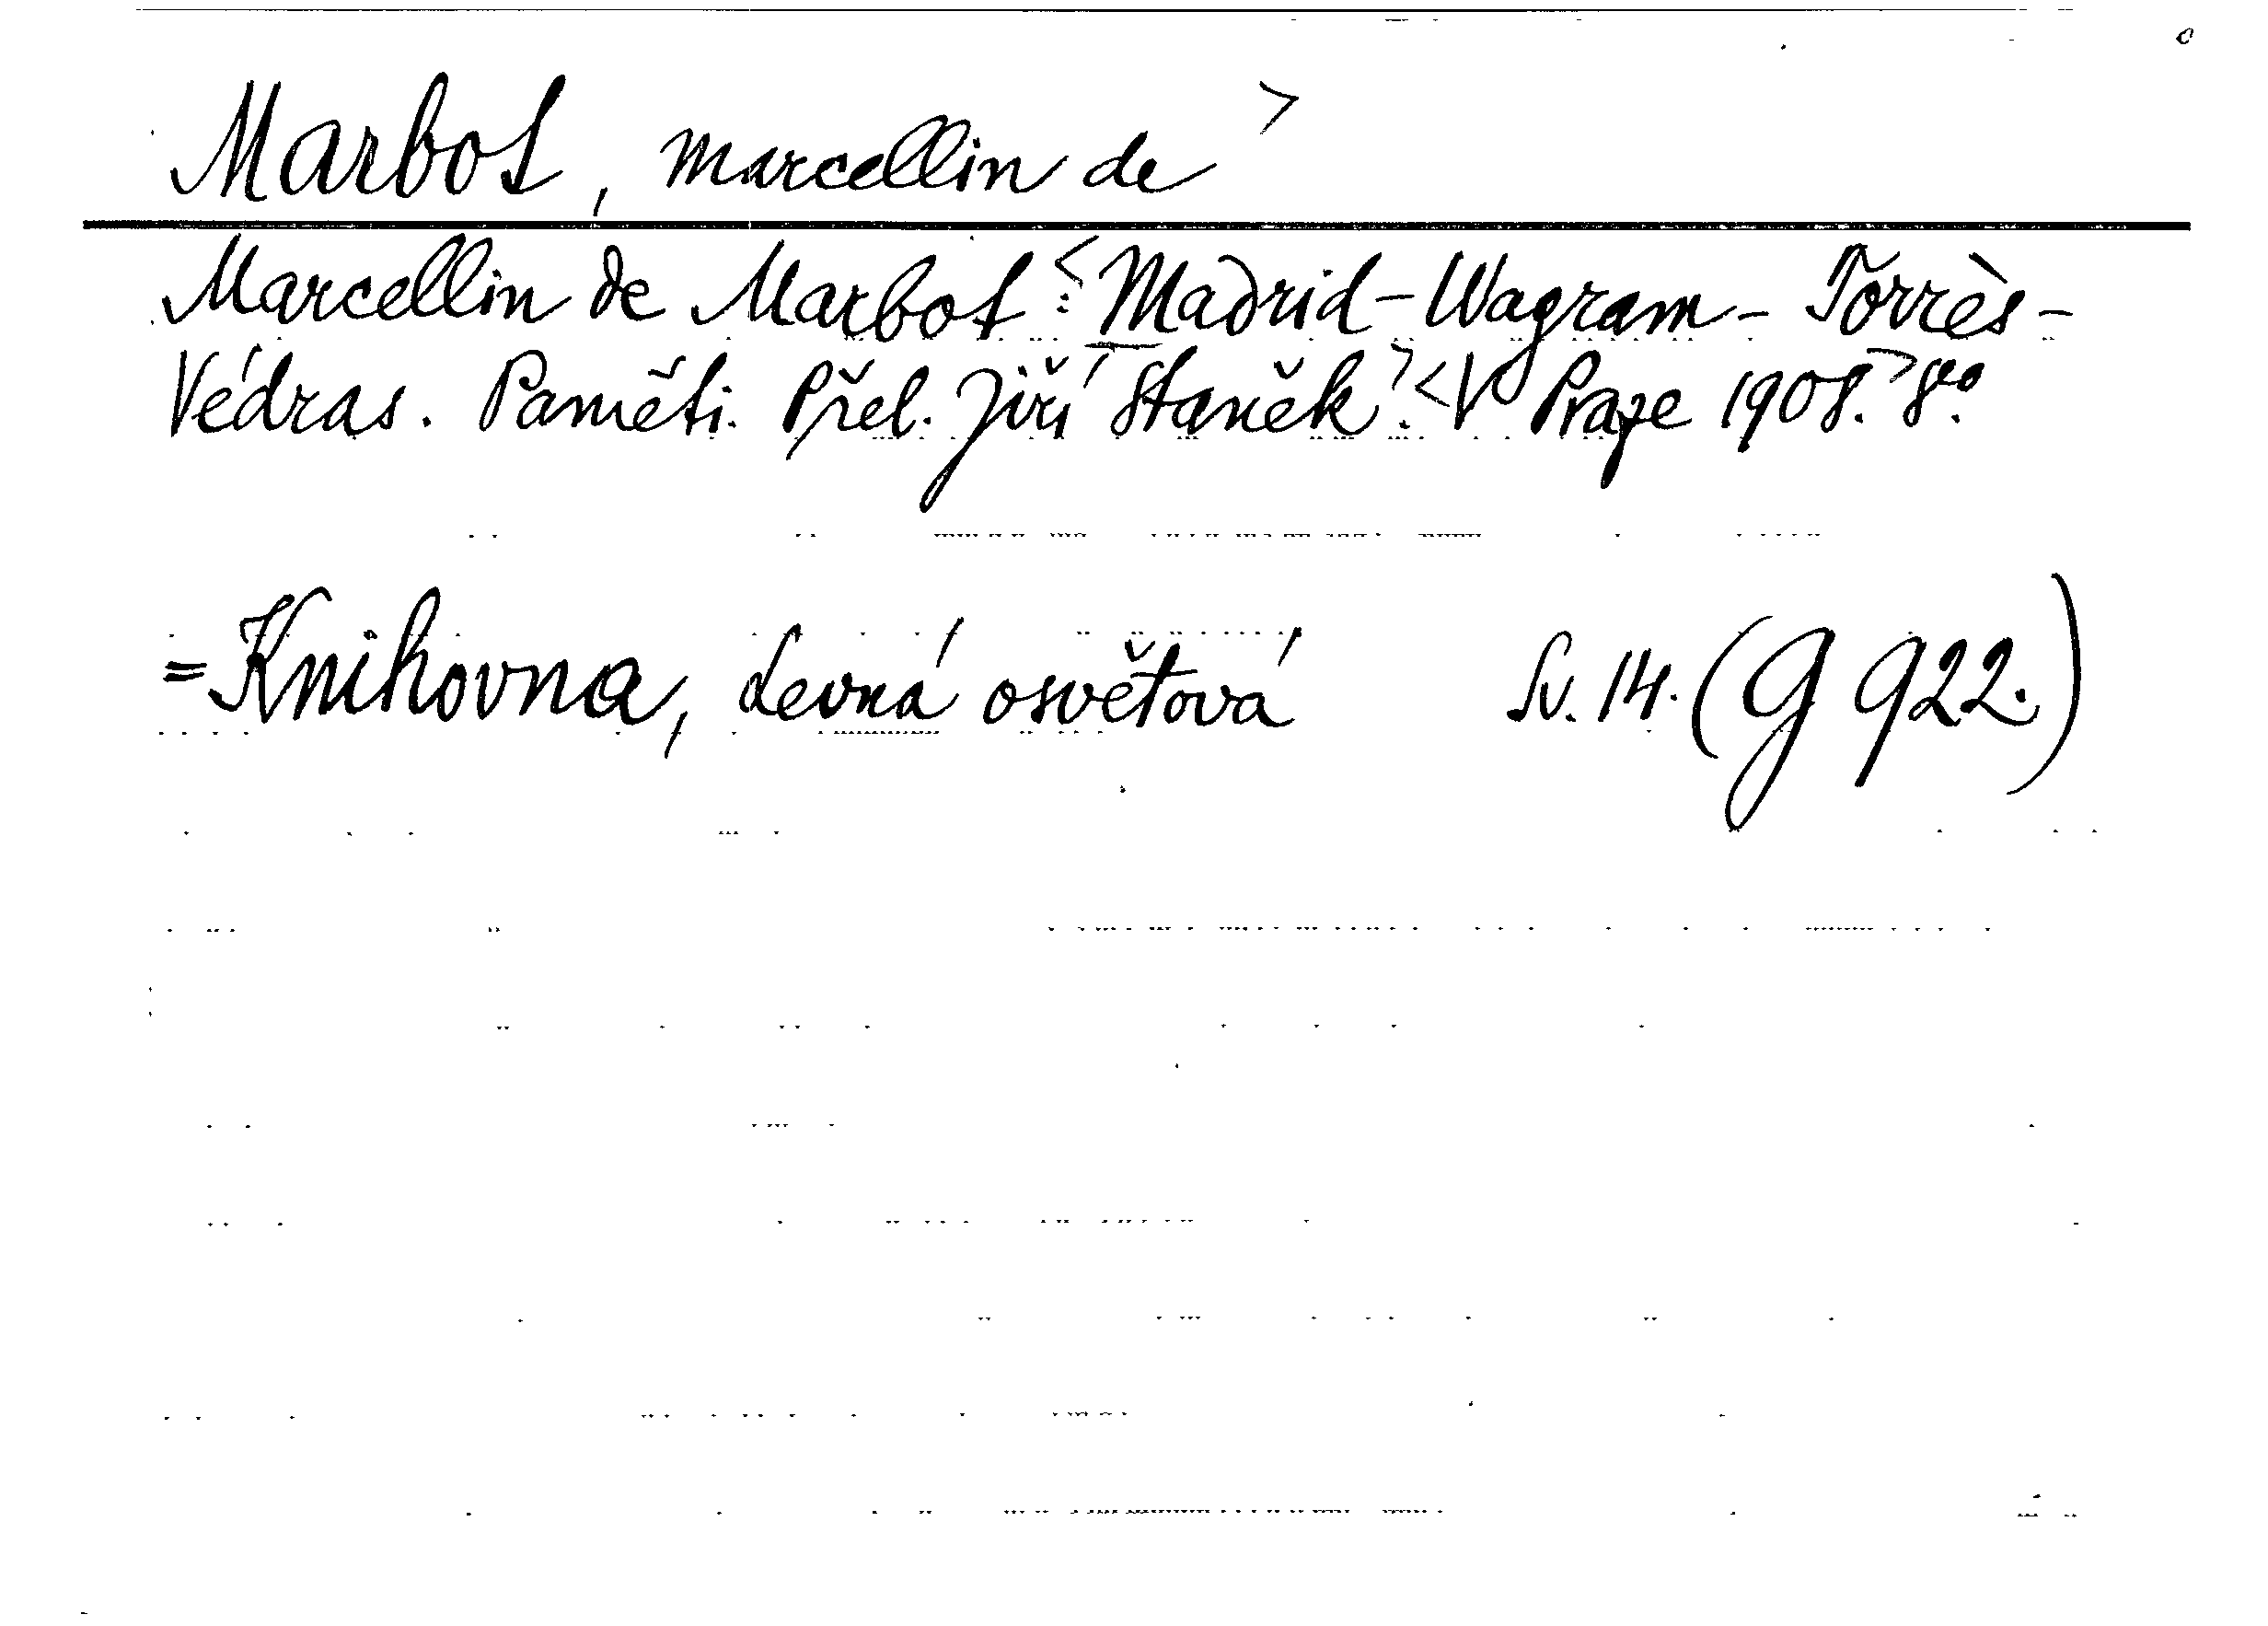 Marbot, Marcellin de >
Marcellin de Marbot <: Madrid - Wagram - Torrès -
Védras. Paměti. Přel. Jiří Staněk >. < V Praze 1908. > 8vo.
= Knihovna, Levná osvětová Sv. 14. (G 922.)